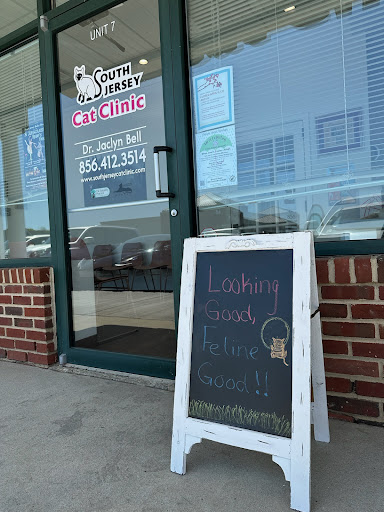 UNIT 7
SOUTH
JERSEY
Cat Clinic
Dr. Jaclyn Bell
856.412.3514
www.southjerseycatclinic.com
Looking
Good,
Feline
Good!!